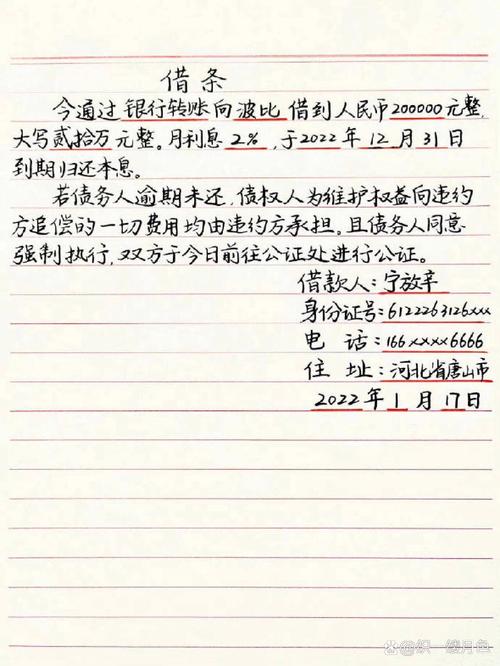 借条
今通过 银行转账向 波比 借到人民币200000元整,
大写贰拾万元整。月利息 2%,于2022年12月31日
到期归还本息。
若债务人逾期未还,债权人为维护权益向违约
方追偿的一切费用均由违约方承担。且债务人同意
强制执行,双方于今日前往公证处进行公证。
借款人:宁放辛
身份证号:6122263126xxx
电 话:166xxxx6666
住 址:河北省唐山市
2022年1月17日
@织一缕月色